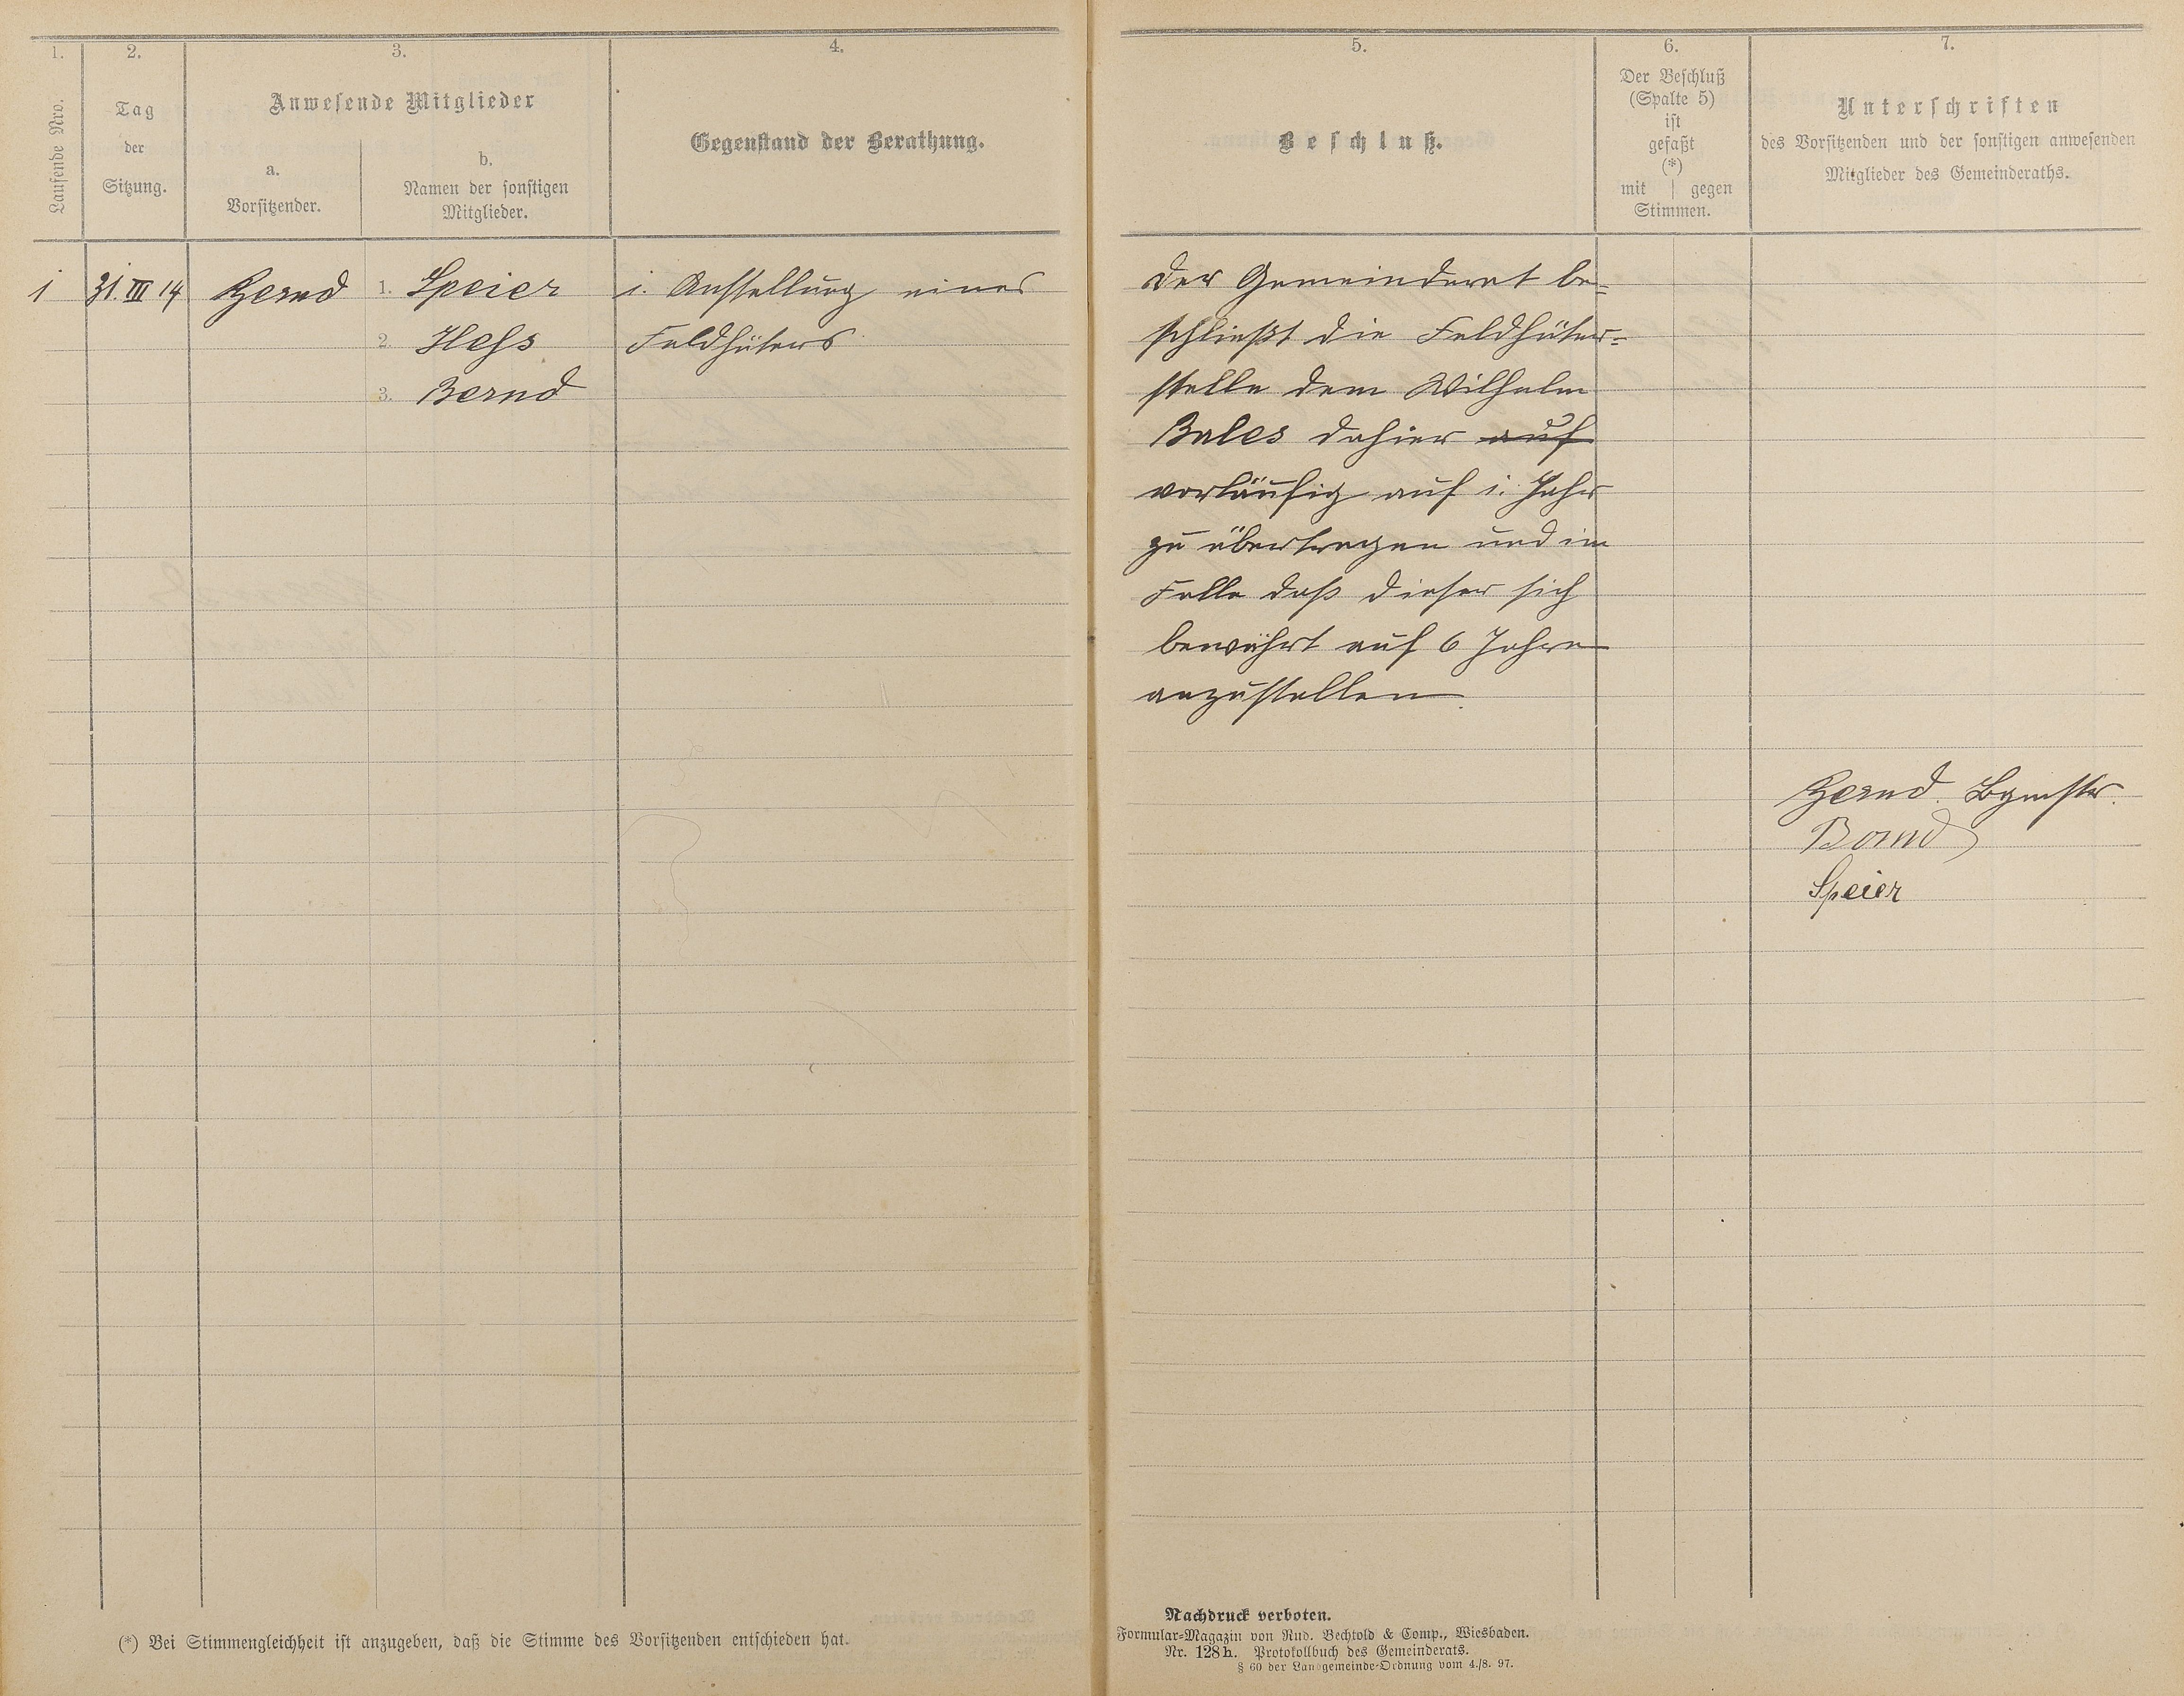 1.
2.
3.
4.
Laufende Nro.
Tag
der
Sitzung.
Anwesende Mitglieder
a.
Vorsitzender.
b.
Namen der sonstigen
Mitglieder.
Gegenstand der Berathung.
1
31. III 14
1. Speier
1. Anstellung eines
2. Heß
Feldhüters
3. Bernd
(*) Bei Stimmengleichheit ist anzugeben, daß die Stimme des Vorsitzenden entschieden hat.
5.
6.
7.
Beschluß.
Der Beschluß
(Spalte 5)
ist
gefaßt
(*)
mit | gegen
Stimmen.
Unterschriften
des Vorsitzenden und der sonstigen anwesenden
Mitglieder des Gemeinderaths.
Der Gemeinderat be-
schließt die Feldhüter-
stelle dem Wilhelm
Bales dahier auf
vorläufig auf 1. Jahr
zu übertragen und im
Falle daß dieser sich
bewährt auf 6 Jahre
anzustellen.
Bgmstr.
Bernd
Speier
Nachdruck verboten.
Formular-Magazin von Rud. Bechtold & Comp., Wiesbaden.
Nr. 128h. Protokollbuch des Gemeinderats.
§ 60 der Landgemeinde-Ordnung vom 4./8. 97.